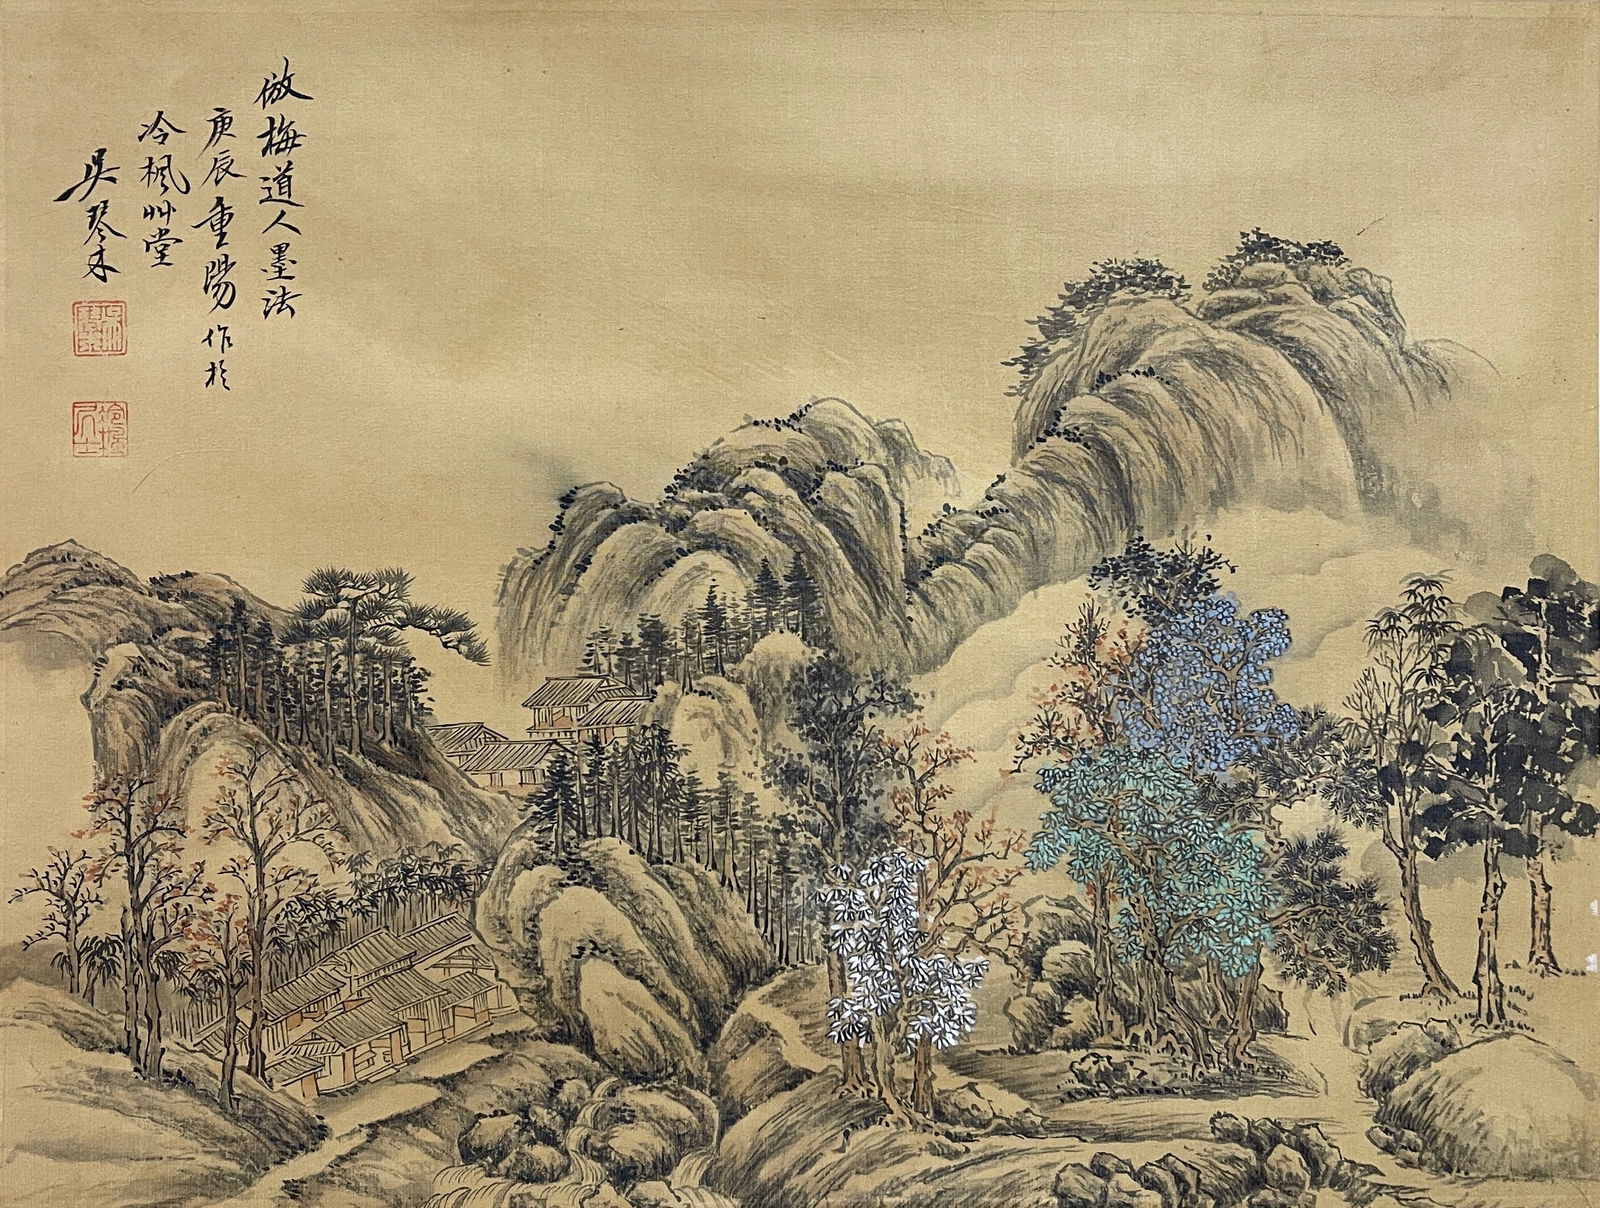 倣梅道人墨法
庚辰重陽作於
冷楓艸堂
吳琴木